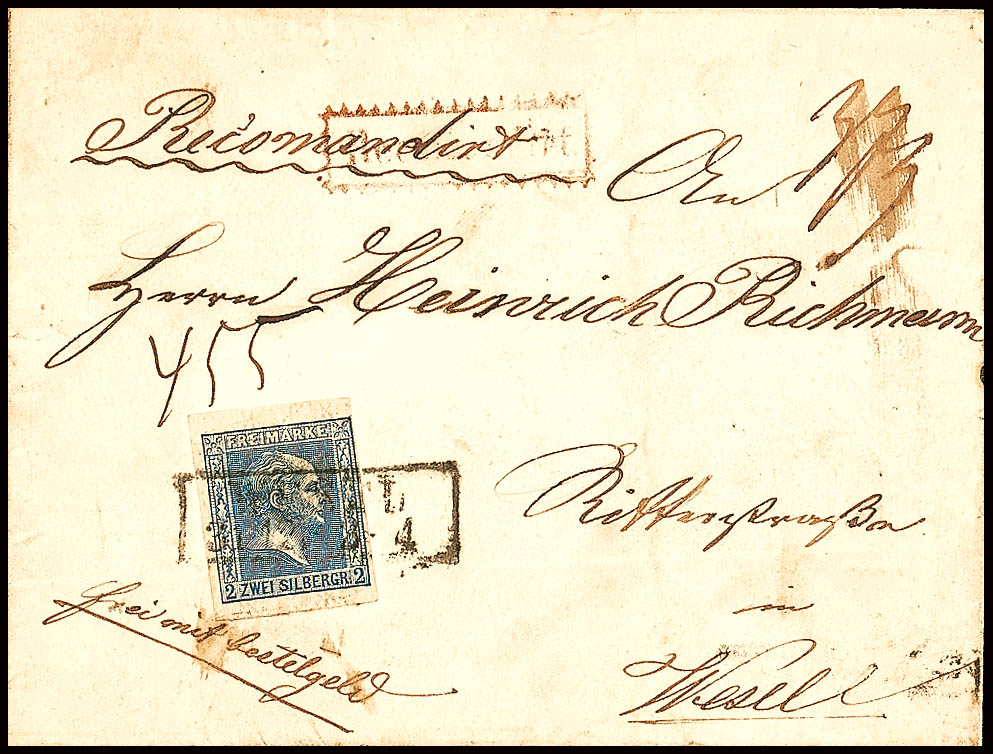 Recomandirt
An
Herrn Heinrich Richmann
455
FREIMARKE
2 ZWEI SILBERGR. 2
4
Ritterstraße
frei mit bestelgeld
in
Wesel